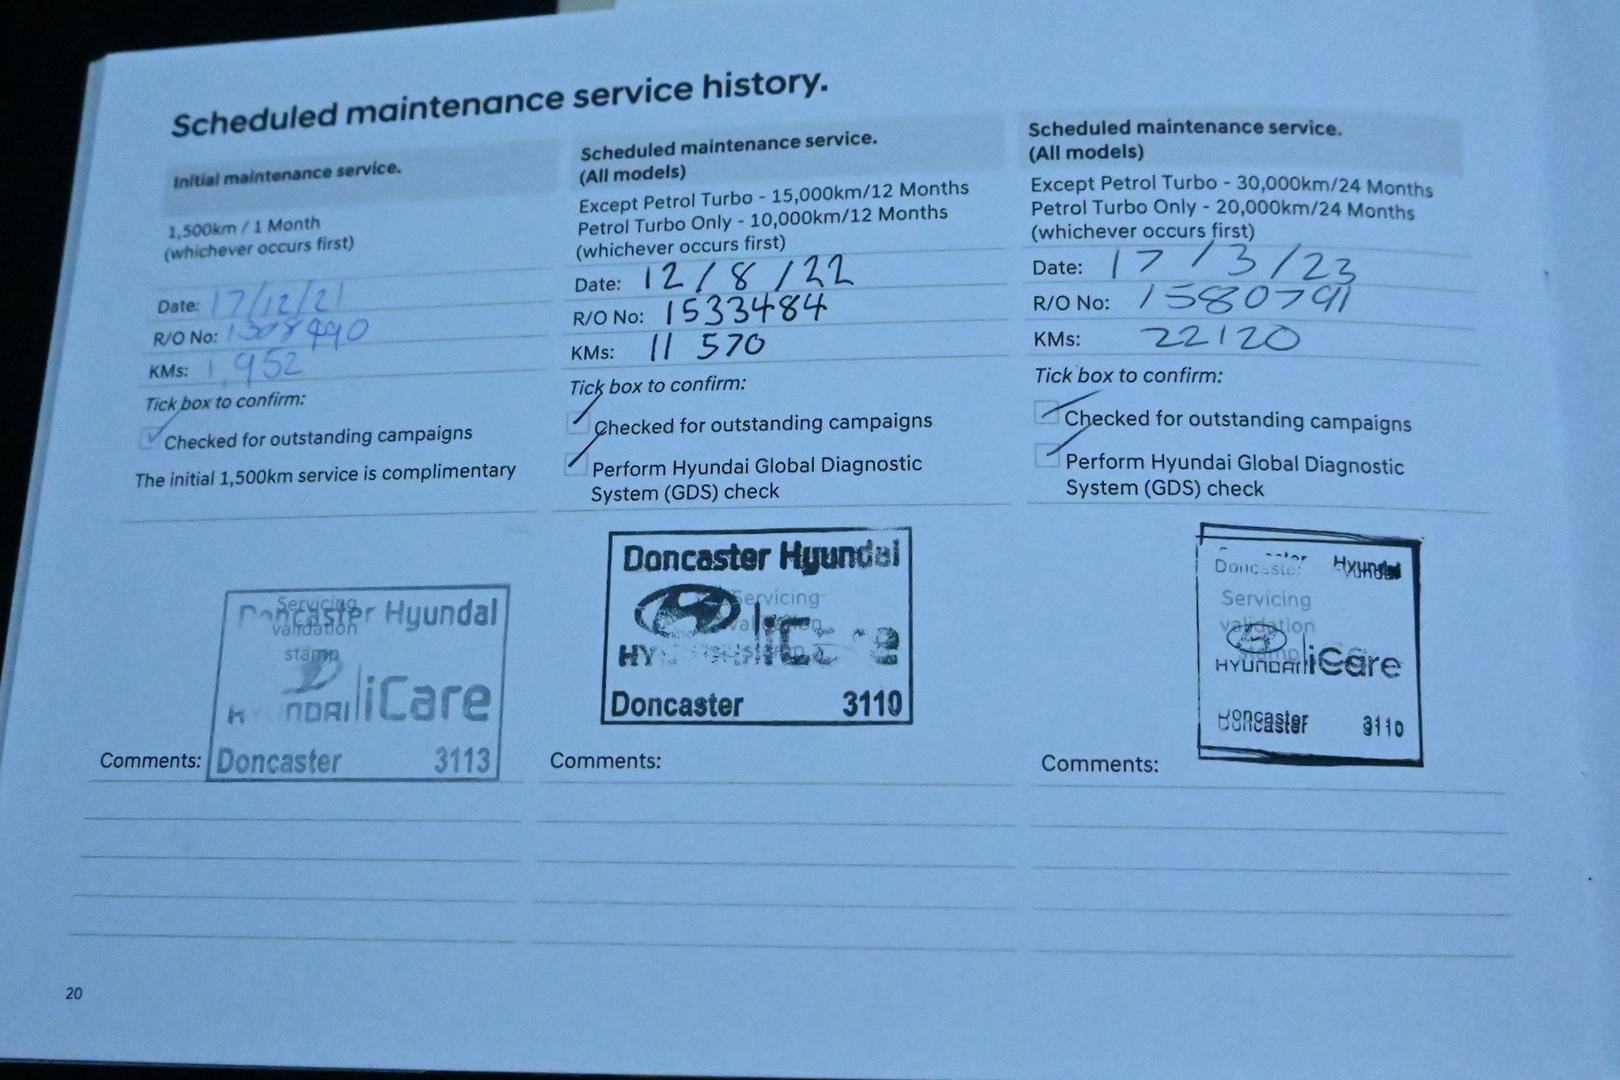 Scheduled maintenance service history.
Initial maintenance service.
1,500km / 1 Month
(whichever occurs first)
Date: 17/12/21
R/O No: 1308490
KMs: 1,952
Tick box to confirm:
Checked for outstanding campaigns
The initial 1,500km service is complimentary
Servicing
validation
stamp
Doncaster Hyundai
HYUNDAI iCare
Doncaster 3113
Comments:
Scheduled maintenance service.
(All models)
Except Petrol Turbo - 15,000km/12 Months
Petrol Turbo Only - 10,000km/12 Months
(whichever occurs first)
Date: 12/8/22
R/O No: 1533484
KMs: 11 570
Tick box to confirm:
Checked for outstanding campaigns
Perform Hyundai Global Diagnostic
System (GDS) check
Doncaster Hyundai
Servicing
validation
stamp
HYUNDAI iCare
Doncaster 3110
Comments:
Scheduled maintenance service.
(All models)
Except Petrol Turbo - 30,000km/24 Months
Petrol Turbo Only - 20,000km/24 Months
(whichever occurs first)
Date: 17/3/23
R/O No: 1580791
KMs: 22120
Tick box to confirm:
Checked for outstanding campaigns
Perform Hyundai Global Diagnostic
System (GDS) check
Doncaster Hyundai
Servicing
validation
stamp
HYUNDAI iCare
Doncaster 3110
Comments:
20